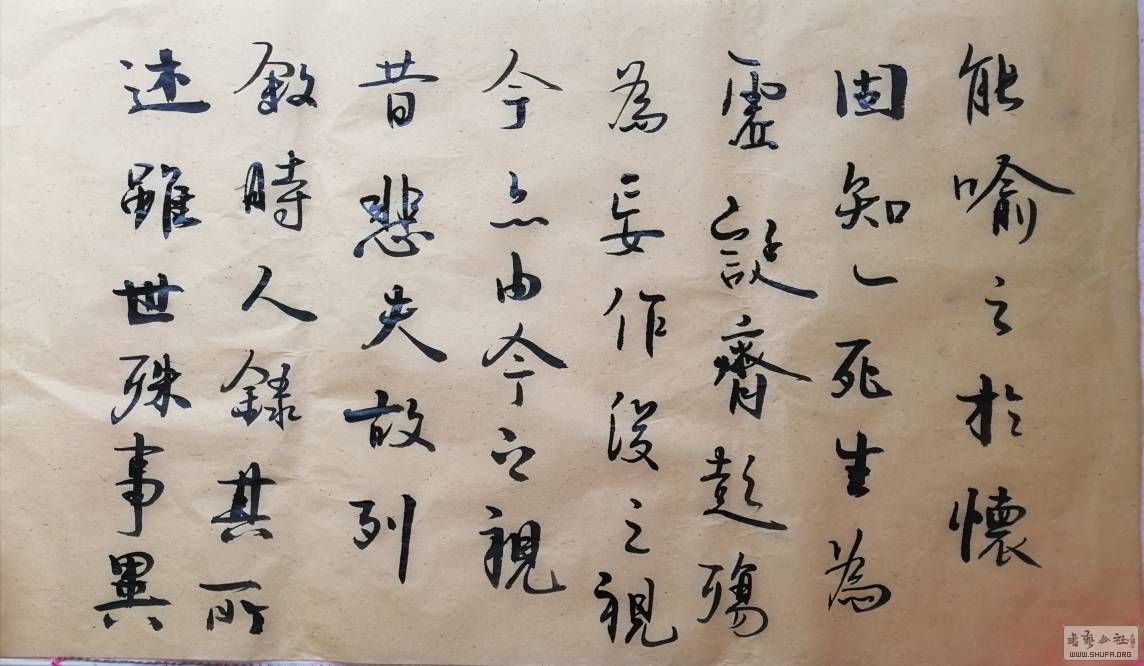 能喻之於懷
固知一死生為
虛誕齊彭殤
為妄作後之視
今亦由今之視
昔悲夫故列
敘時人錄其所
述雖世殊事異
书艺公社
WWW.SHUFA.ORG